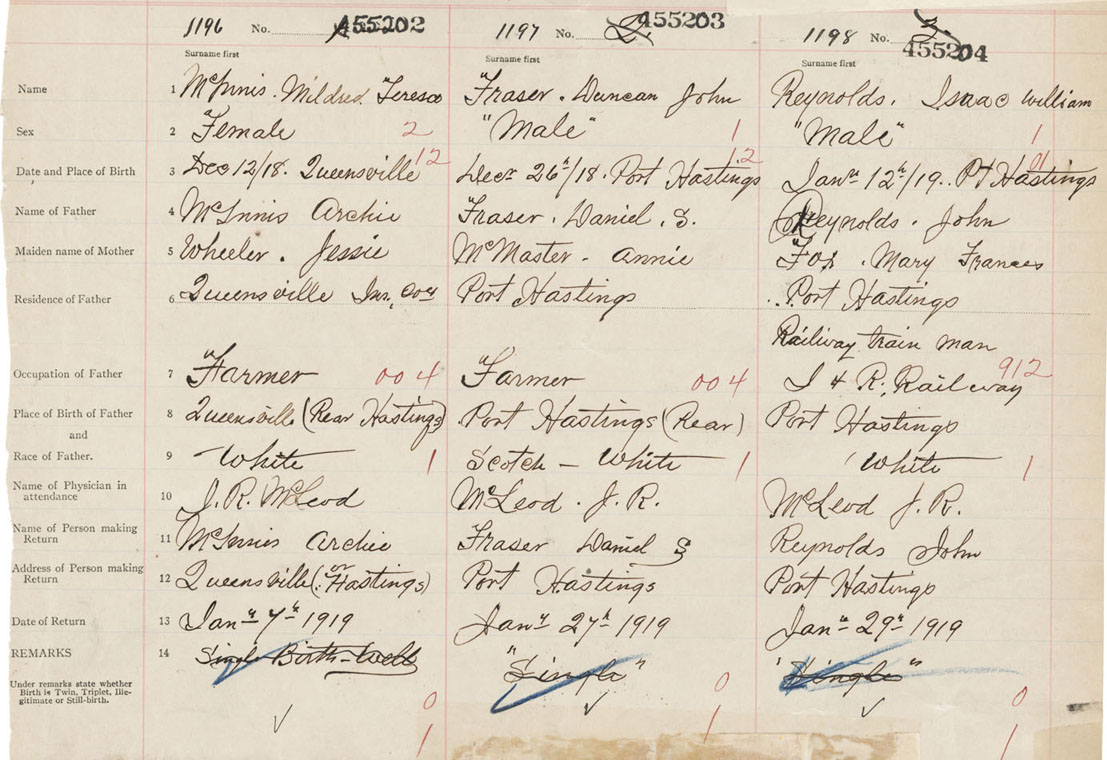 1196 No. 455202 1197 No. 2. 455203 1198 No. 3. 455204
Surname first Surname first Surname first
Name 1 McInnis. Mildred Teresa Fraser. Duncan John Reynolds. Isaac William
Sex 2 Female 2 "Male" 1 "Male" 1
Date and Place of Birth 3 Dec 12/18. Queensville 12 Decr 26th/18. Port Hastings 12 Jany 12th/19. Pt Hastings 01
Name of Father 4 McInnis Archie Fraser. Daniel. S. Reynolds. John
Maiden name of Mother 5 Wheeler. Jessie McMaster - Annie Fox. Mary Frances
Residence of Father 6 Queensville Inv. Coy Port Hastings Port Hastings
Railway train man
Occupation of Father 7 "Farmer 004 "Farmer 004 I & R. Railway 912
Place of Birth of Father 8 Queensville (Rear Hastings) Port Hastings (Rear) Port Hastings
and
Race of Father. 9 White 1 Scotch - White 1 White 1
Name of Physician in
attendance 10 J. R. McLeod McLeod. J. R. McLeod J. R.
Name of Person making
Return 11 McInnis Archie Fraser Daniel S Reynolds John
Address of Person making
Return 12 Queensville (or Hastings) Port Hastings Port Hastings
Date of Return 13 Jany 7th 1919 Jany 27th 1919 Jany 29th 1919
REMARKS 14 Single Birth - Well "Single" "Single"
Under remarks state whether
Birth is Twin, Triplet, Ille-
gitimate or Still-birth.
0 0 0
1 1 1